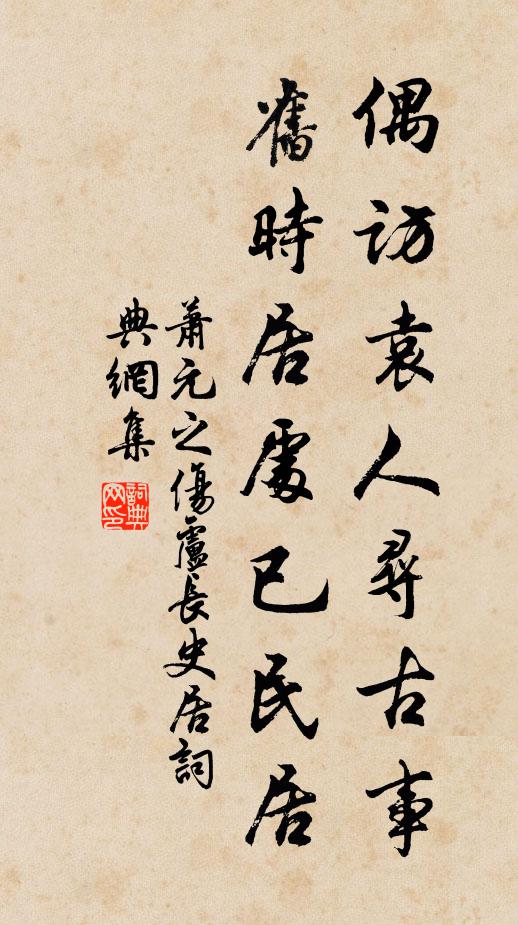 偶訪袁人尋古事
舊時居處已民居
蕭元之傷盧長史居詞
典網集
詞典
网印